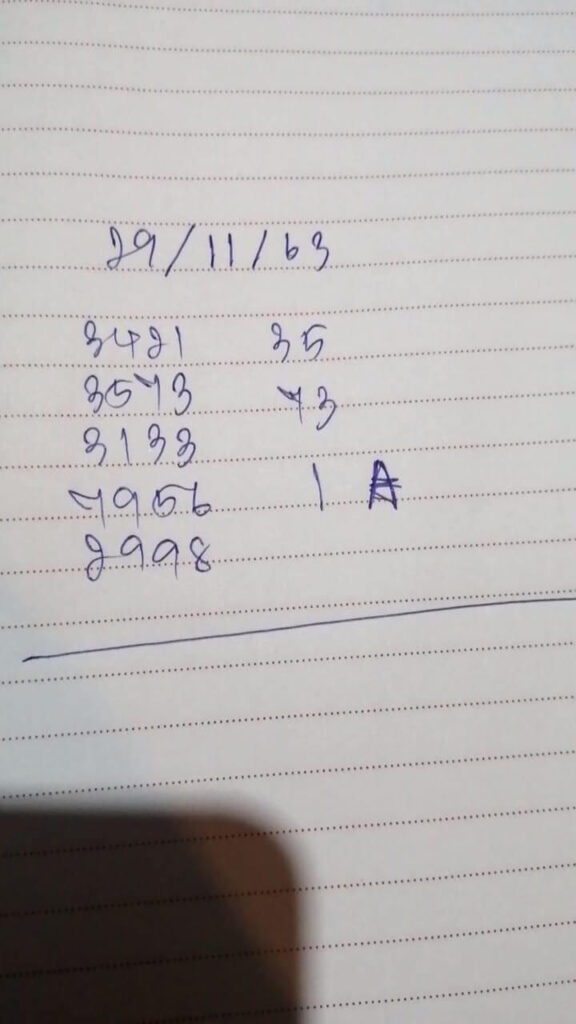 29/11/63
3421 35
3573 73
3133
7956 1 A
2998